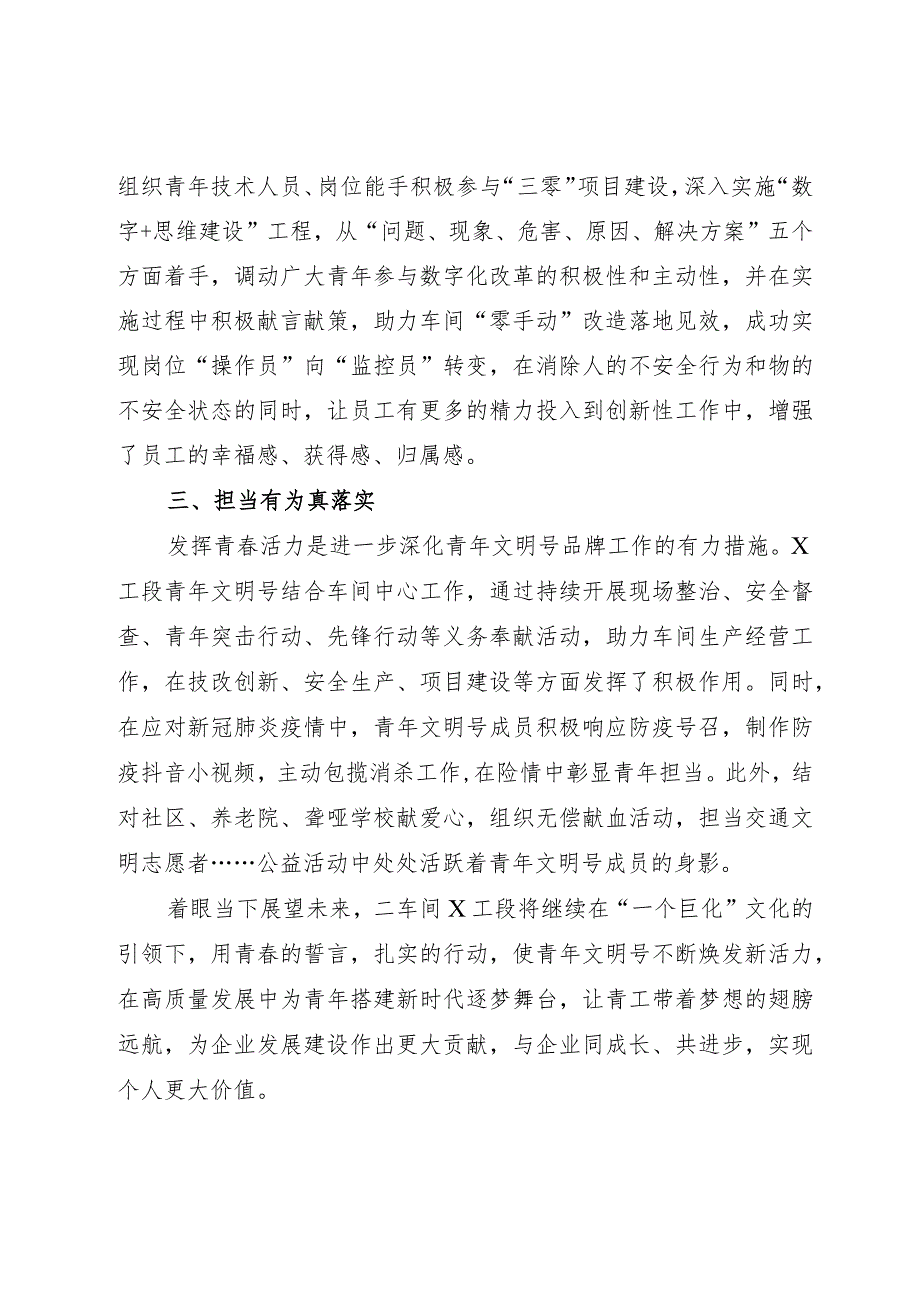 组织青年技术人员、岗位能手积极参与“三零”项目建设，深入实施“数
字+思维建设”工程，从“问题、现象、危害、原因、解决方案”五个
方面着手，调动广大青年参与数字化改革的积极性和主动性，并在实
施过程中积极献言献策，助力车间“零手动”改造落地见效，成功实
现岗位“操作员”向“监控员”转变，在消除人的不安全行为和物的
不安全状态的同时，让员工有更多的精力投入到创新性工作中，增强
了员工的幸福感、获得感、归属感。
三、担当有为真落实
发挥青春活力是进一步深化青年文明号品牌工作的有力措施。X
工段青年文明号结合车间中心工作，通过持续开展现场整治、安全督
查、青年突击行动、先锋行动等义务奉献活动，助力车间生产经营工
作，在技改创新、安全生产、项目建设等方面发挥了积极作用。同时，
在应对新冠肺炎疫情中，青年文明号成员积极响应防疫号召，制作防
疫抖音小视频，主动包揽消杀工作,在险情中彰显青年担当。此外，结
对社区、养老院、聋哑学校献爱心，组织无偿献血活动，担当交通文
明志愿者……公益活动中处处活跃着青年文明号成员的身影。
着眼当下展望未来，二车间 X 工段将继续在“一个巨化”文化的
引领下，用青春的誓言，扎实的行动，使青年文明号不断焕发新活力，
在高质量发展中为青年搭建新时代逐梦舞台，让青工带着梦想的翅膀
远航，为企业发展建设作出更大贡献，与企业同成长、共进步，实现
个人更大价值。